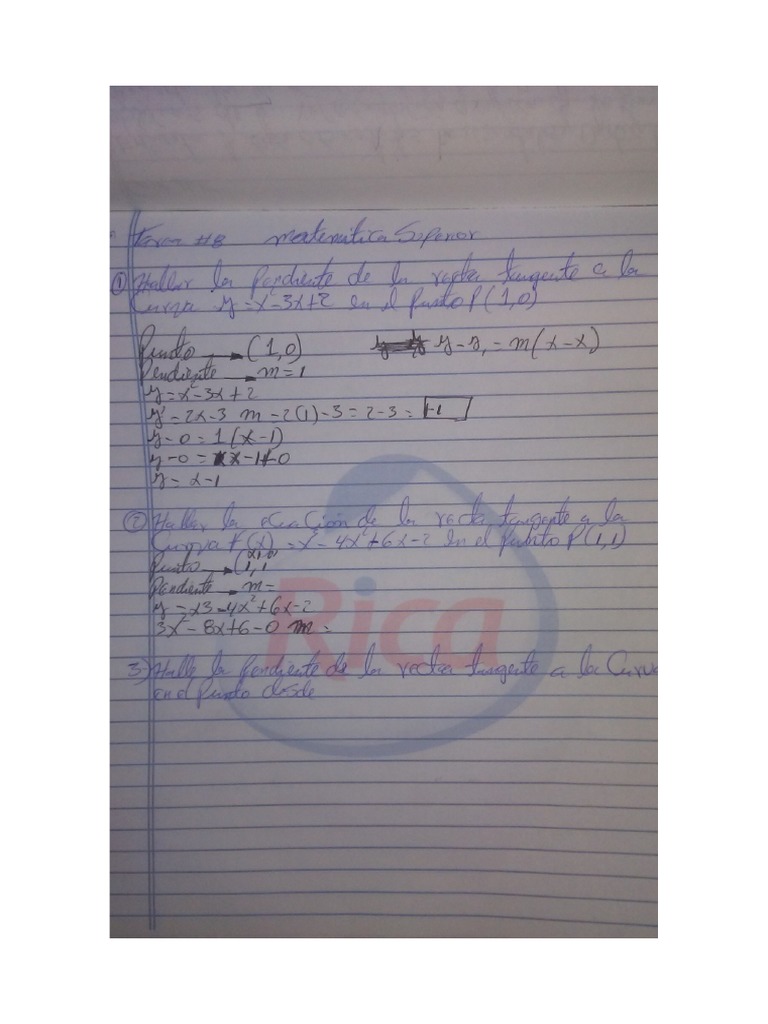 Tarea #8 matemática Superior
① Hallar la Pendiente de la recta tangente a la
Curva y = x - 3x + 2 en el punto P(1,0)
Punto → (1,0) y - y₁ = m(x - x)
Pendiente → m = 1
y = x - 3x + 2
y' = 2x - 3 m - 2(1) - 3 = 2 - 3 = -1
y - 0 = 1(x - 1)
y - 0 = x - 1 + 0
y = x - 1
② Hallar la ecuación de la recta tangente a la
Curva f(x) = x³ - 4x² + 6x - 2 en el punto P(1,1)
Punto → (1,1)
Pendiente → m =
y = x3 - 4x² + 6x - 2
3x² - 8x + 6 - 0 m =
3) Halle la pendiente de la recta tangente a la Curva
en el punto desde
Rica